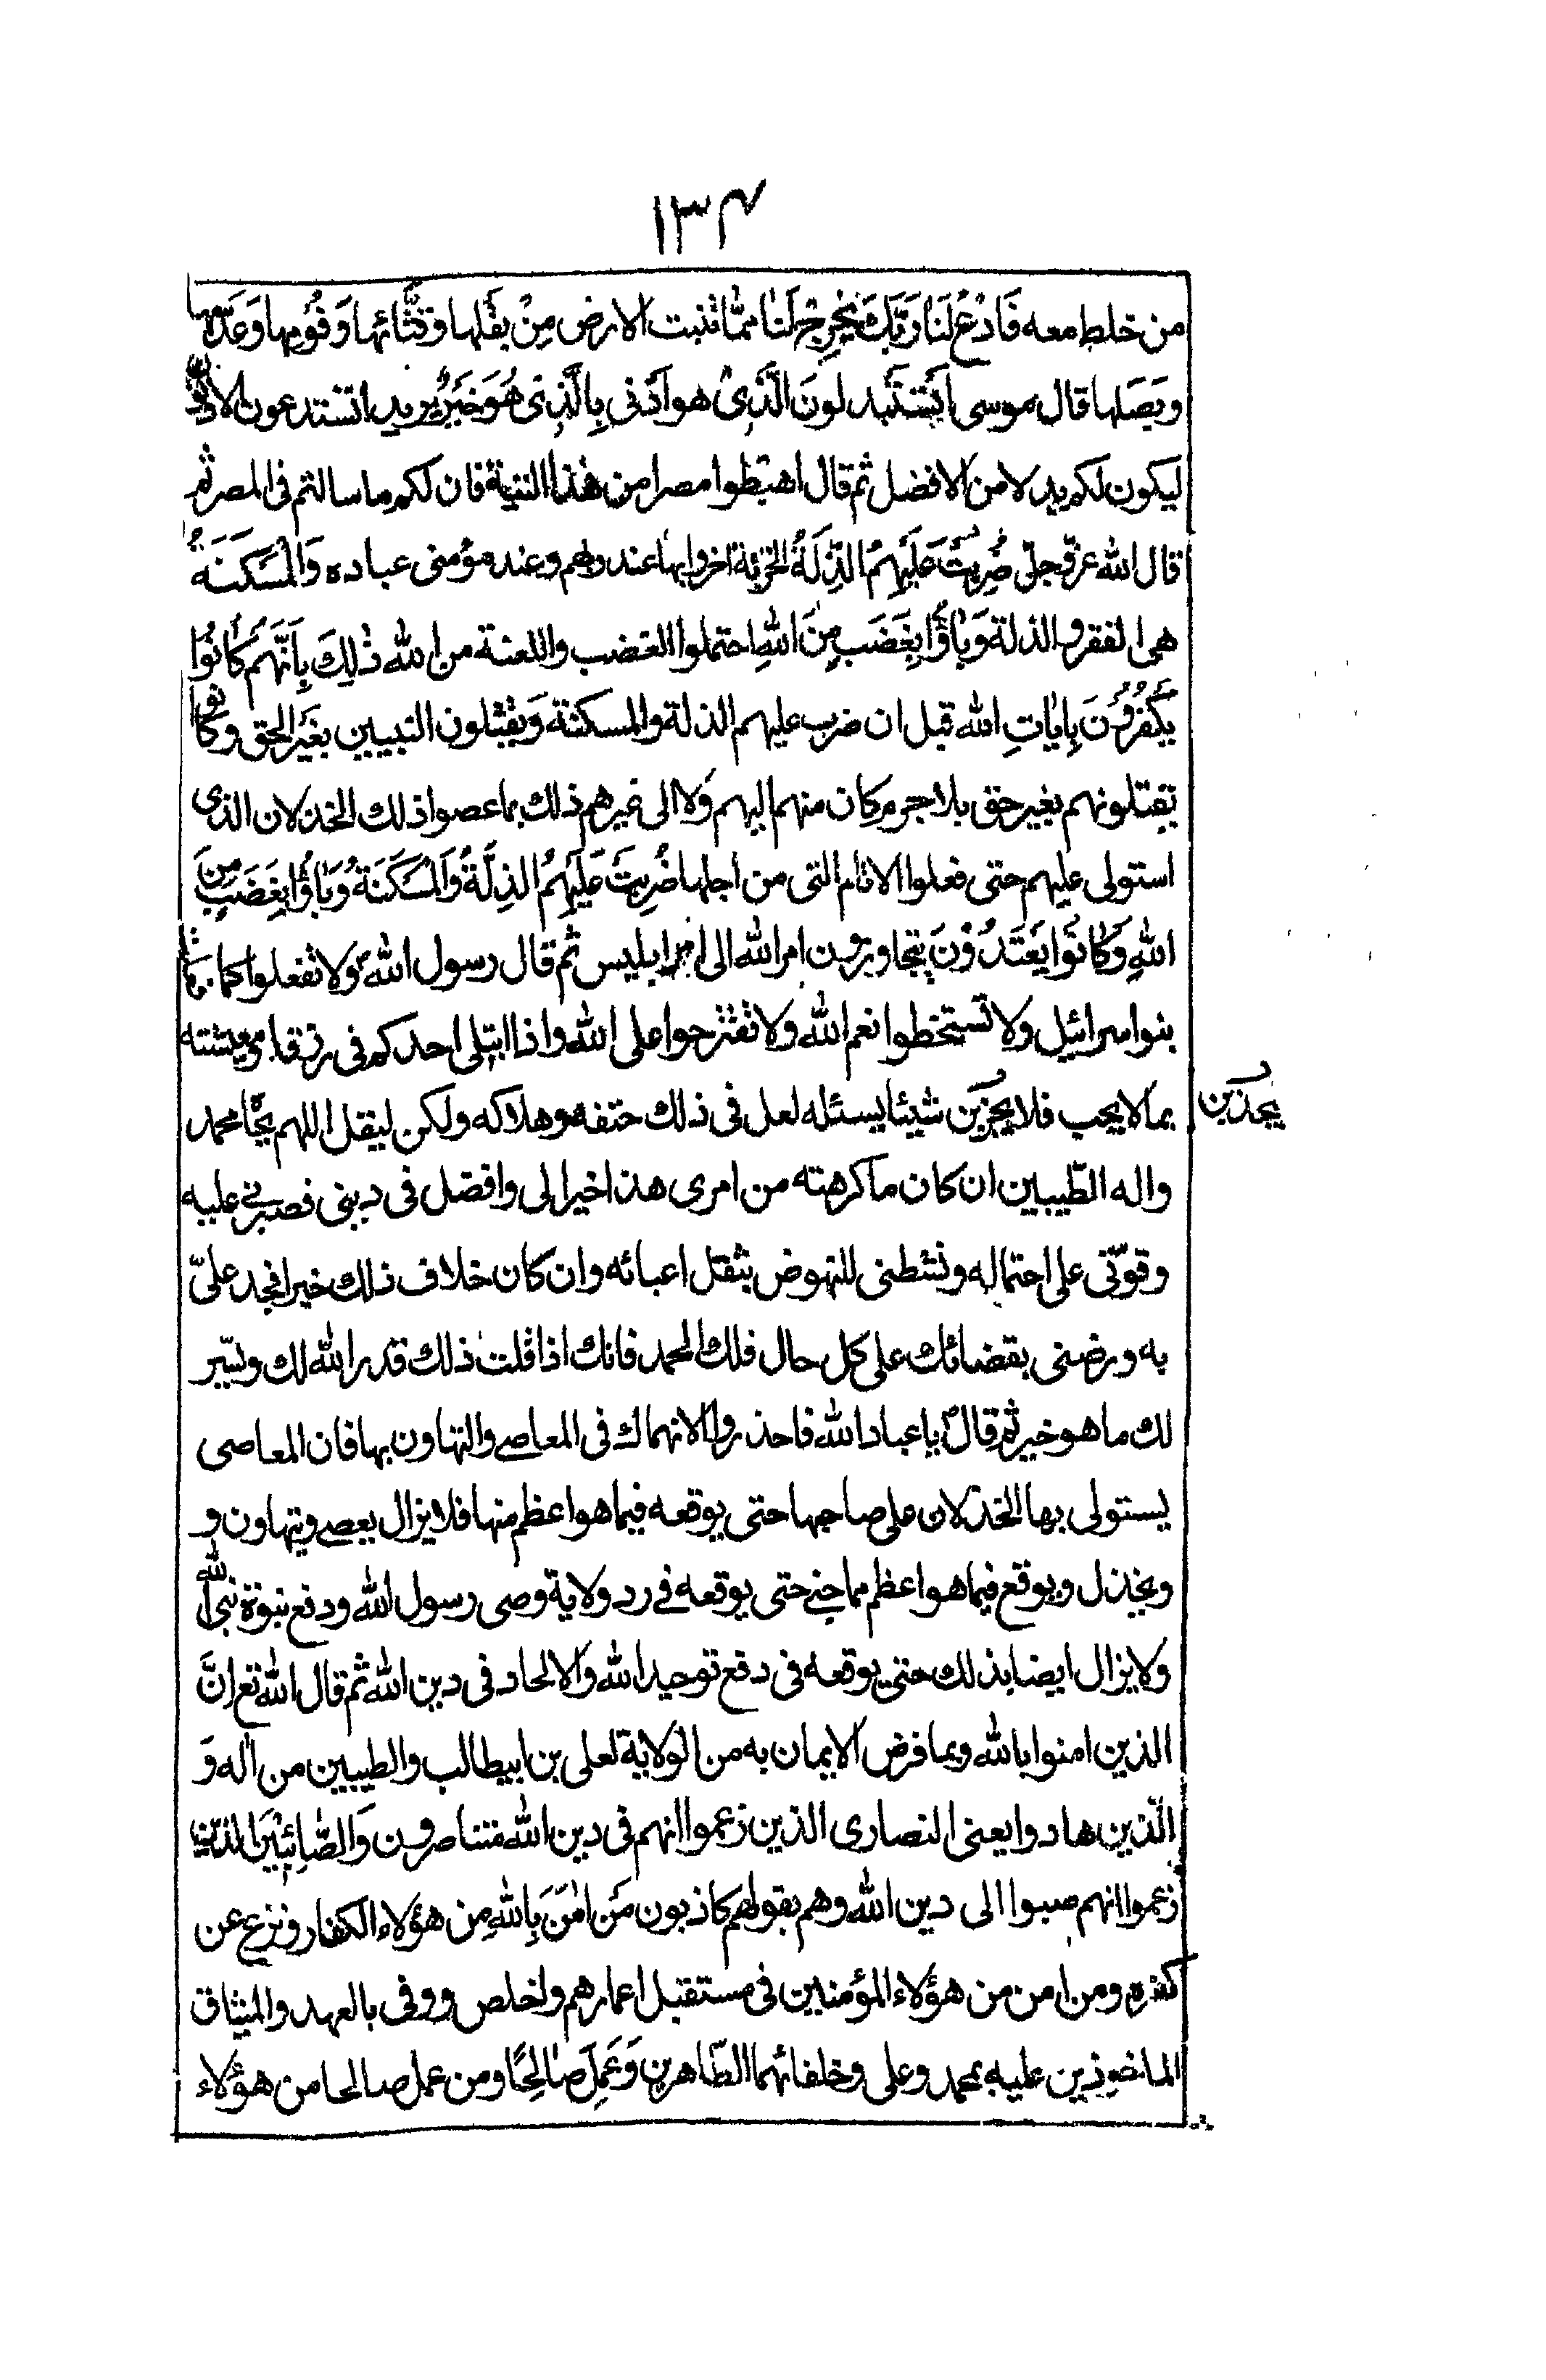 ١٣٤
من خلط معه فَادْعُ لَنَا رَبَّكَ يُخْرِجْ لَنَا مِمَّا تنبت الارض مِنْ بَقْلِها وَقِثَّائها وَفُومِها وَعَدَسِها
وبَصَلِها قال موسى اَتَسْتَبْدِلونَ الَّذِىْ هو اَدْنى بِالَّذِى هُوَ خَيْرٌ يريد اتستدعون الادنى
ليكون لكم بدلا من الافضل ثم قال اهبطوا مصرا من هذا التيه فان لكم ما سالتم فى المصر ثم
قال الله عزّ وجلّ ضُرِبَتْ عَلَيْهِمُ الذِّلَةُ الجزية اخزوا بها عند ربهم وعند مؤمنى عباده وَالْمَسْكَنَةُ
هى الفقر والذلة وَبَاؤُا بِغَضَبٍ مِنَ اللهِ احتملوا الغضب واللعنة من الله ذٰلِكَ بِاَنَّهُمْ كَانُوْا
يَكْفُرُوْنَ بِاٰيَاتِ الله قبل ان ضرب عليهم الذلة والمسكنة وَيقتلون النبيين بغَيْرِ الحق وكانوا
يقتلونهم بغير حق بلا جرم كان منهم اليهم وَلا الى غيرهم ذلك بما عصوا ذلك الخذلان الذى
استولى عليهم حتى فعلوا الاثام التى من اجلها ضُرِبَتْ عَلَيْهِمُ الذِلَّةُ وَالْمَسْكَنَةُ وَبَاؤُا بِغَضَبٍ مِنَ
اللهِ وَكَانُوْا يَعْتَدُوْنَ يتجاوزون امر الله الى امر ابليس ثم قال رسول الله وَلا تفعلوا كما فعلت
بنو اسرائيل ولا تستخطوا نعم الله ولا تقترحوا على الله واذا ابتلى احدكم فى رزقه او معيشته
بما لا يحب فلا يجزين شيئا يسئله لعل فى ذلك حتفه وهلاكه ولكن ليقل اللهم بجاه محمد
يحذين
واله الطّيبين ان كان ما كرهته من امرى هذا خيرا لى وافضل فى دينى فصبرنى عليه
وقوّنى على احتماله ونشطنى للنهوض بثقل اعبائه وان كان خلاف ذلك خيرا فجد علىّ
به ورضنى بقضائك على كل حال فلك الحمد فانك اذا قلت ذلك قدر الله لك ويسّر
لك ما هو خير ثم قال يا عباد الله فاحذروا الانهماك فى المعاصى والتهاون بها فان المعاصى
يستولى بها الخذلان على صاحبها حتى يوقعه فيما هو اعظم منها فلا يزال يعصى ويتهاون و
ويخذل ويوقع فيما هو اعظم مما جنى حتى يوقعه فى رد ولاية وصى رسول الله ودفع نبوة نبى الله
ولا يزال ايضا بذلك حتى يوقعه فى دفع توحيد الله والالحاد فى دين الله ثم قال الله تع اِنَّ
الذين امنوا بالله وبما فرض الايمان به من الولاية لعلى بن ابيطالب والطيبين من اله وَ
الّذين هادوا يعنى النصارى الذين زعموا انهم فى دين الله متناصرون وَالصّابِئِيْنَ الذين
زعموا انهم صبوا الى دين الله وهم بقولهم كاذبون مَنْ اٰمَنَ بِاللهِ مِن هؤلاء الكفار ونزع عن
كفره ومن امن من هؤلاء المؤمنين فى مستقبل اعمارهم واخلص ووفى بالعهد والميثاق
الماخوذين عليه بمحمد وعلى وخلفائهما الطّاهرين وَعَمِلَ صٰالِحًا ومن عمل صالحا من هؤلاء